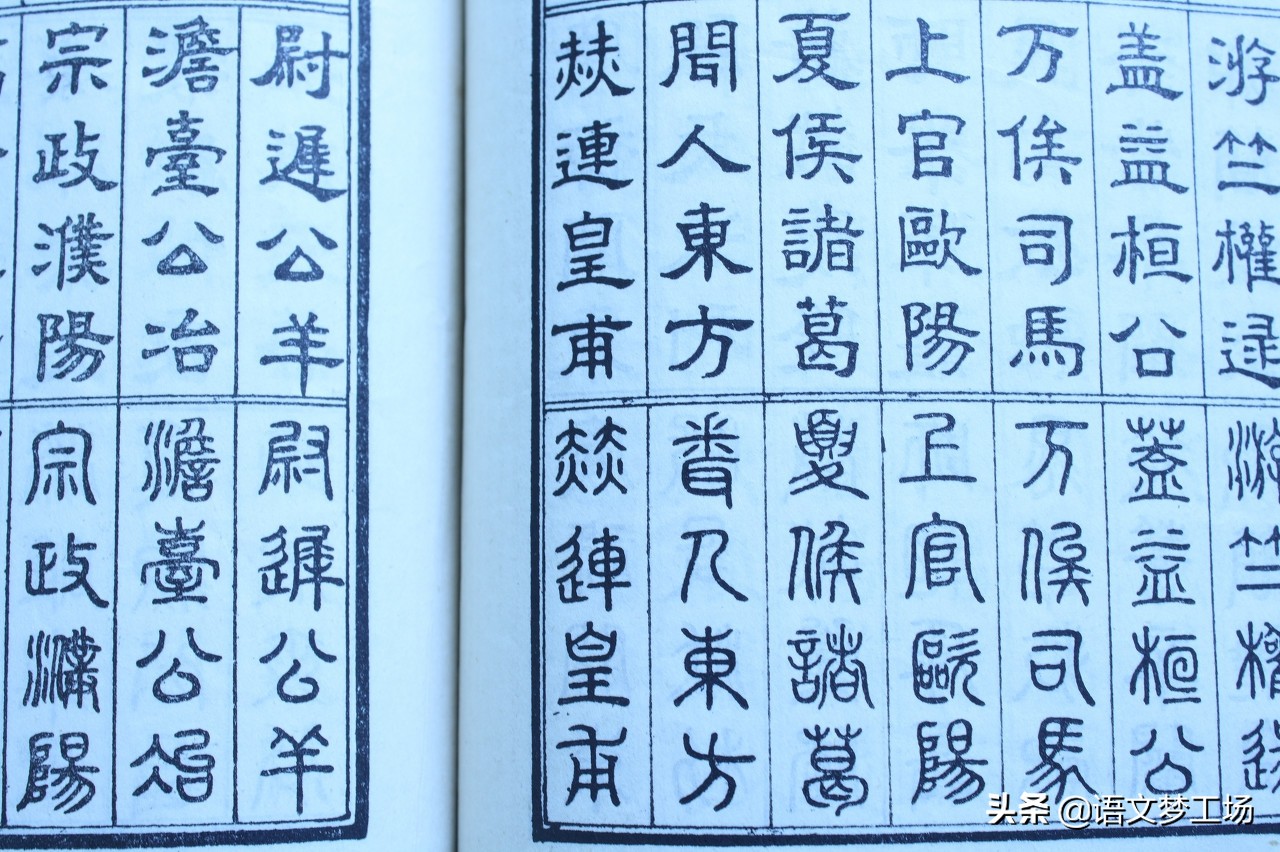 游竺權逯
盖益桓公
万俟司馬
上官歐陽
夏侯諸葛
聞人東方
赫連皇甫
游竺權逯
蓋益桓公
万俟司馬
上官歐陽
夏侯諸葛
聞人東方
赫連皇甫
尉遲公羊
澹臺公冶
宗政濮陽
尉遲公羊
澹臺公冶
宗政濮陽
头条 @语文梦工场